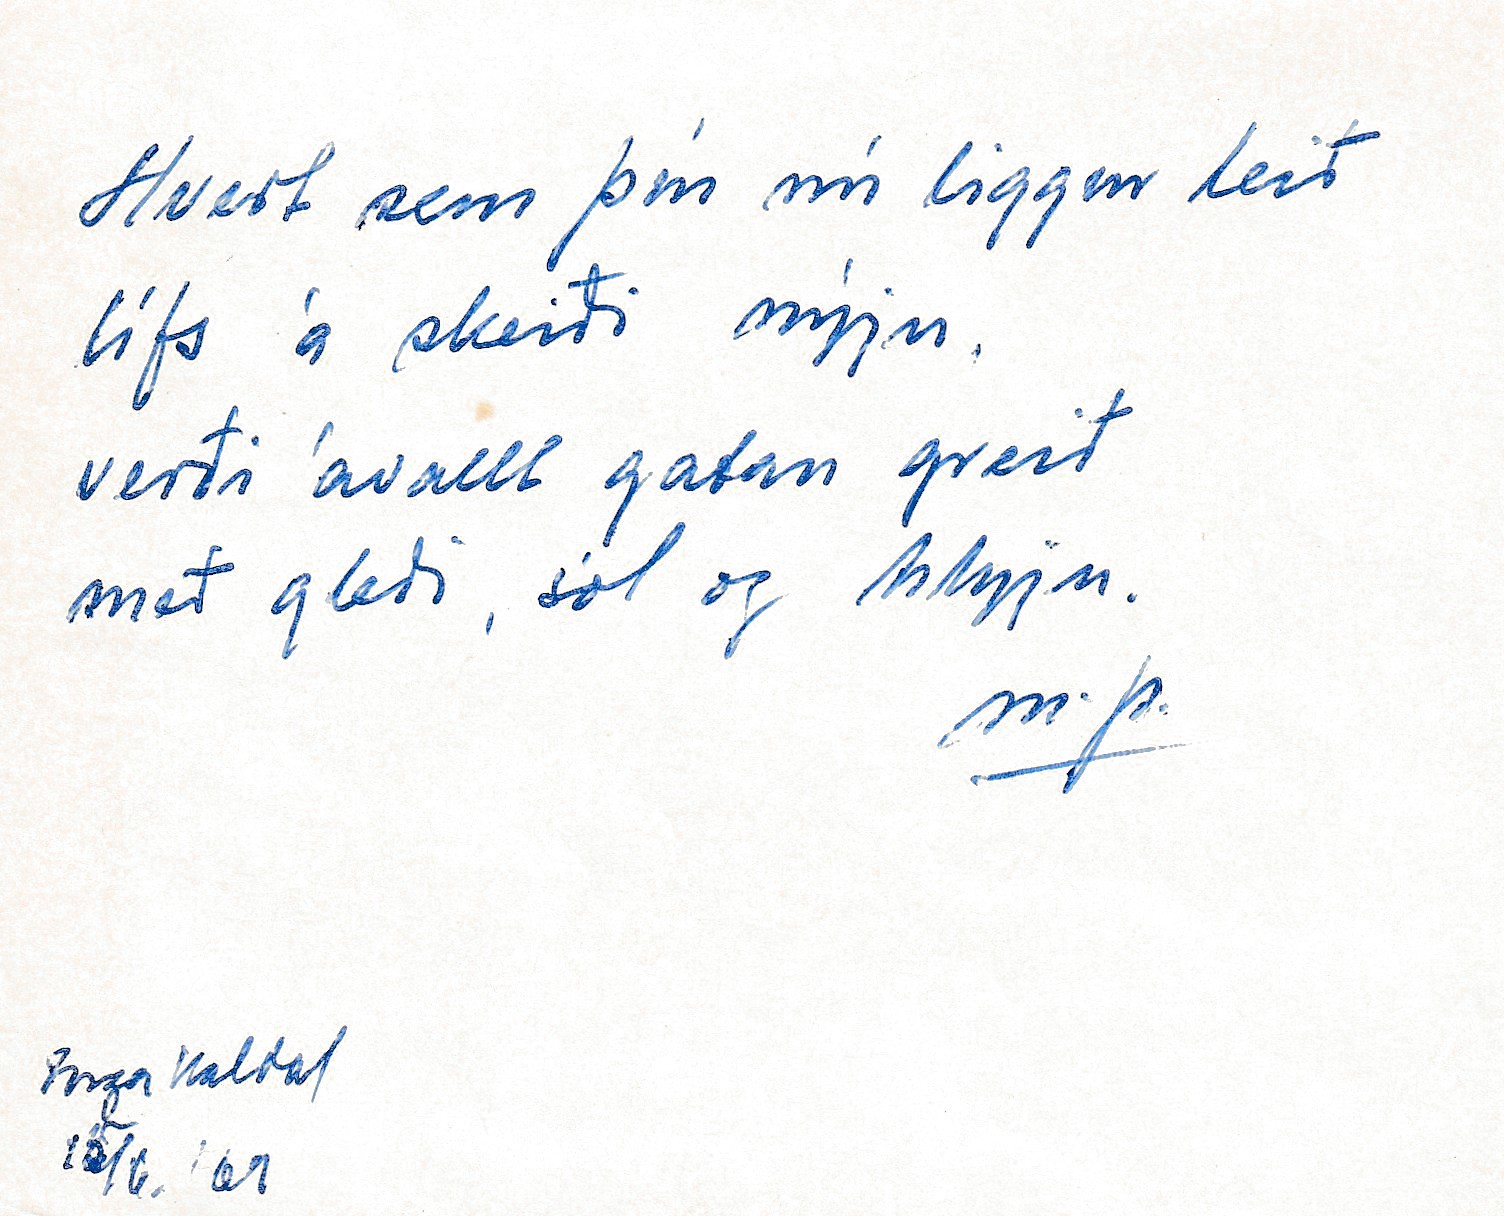 Hvert sem þín nú liggur leið
lífs á skeiði nýju,
verði ávallt gatan greið
með gleði, sól og hlýju.
M.Þ.
Inga Kaldal
/6. '69